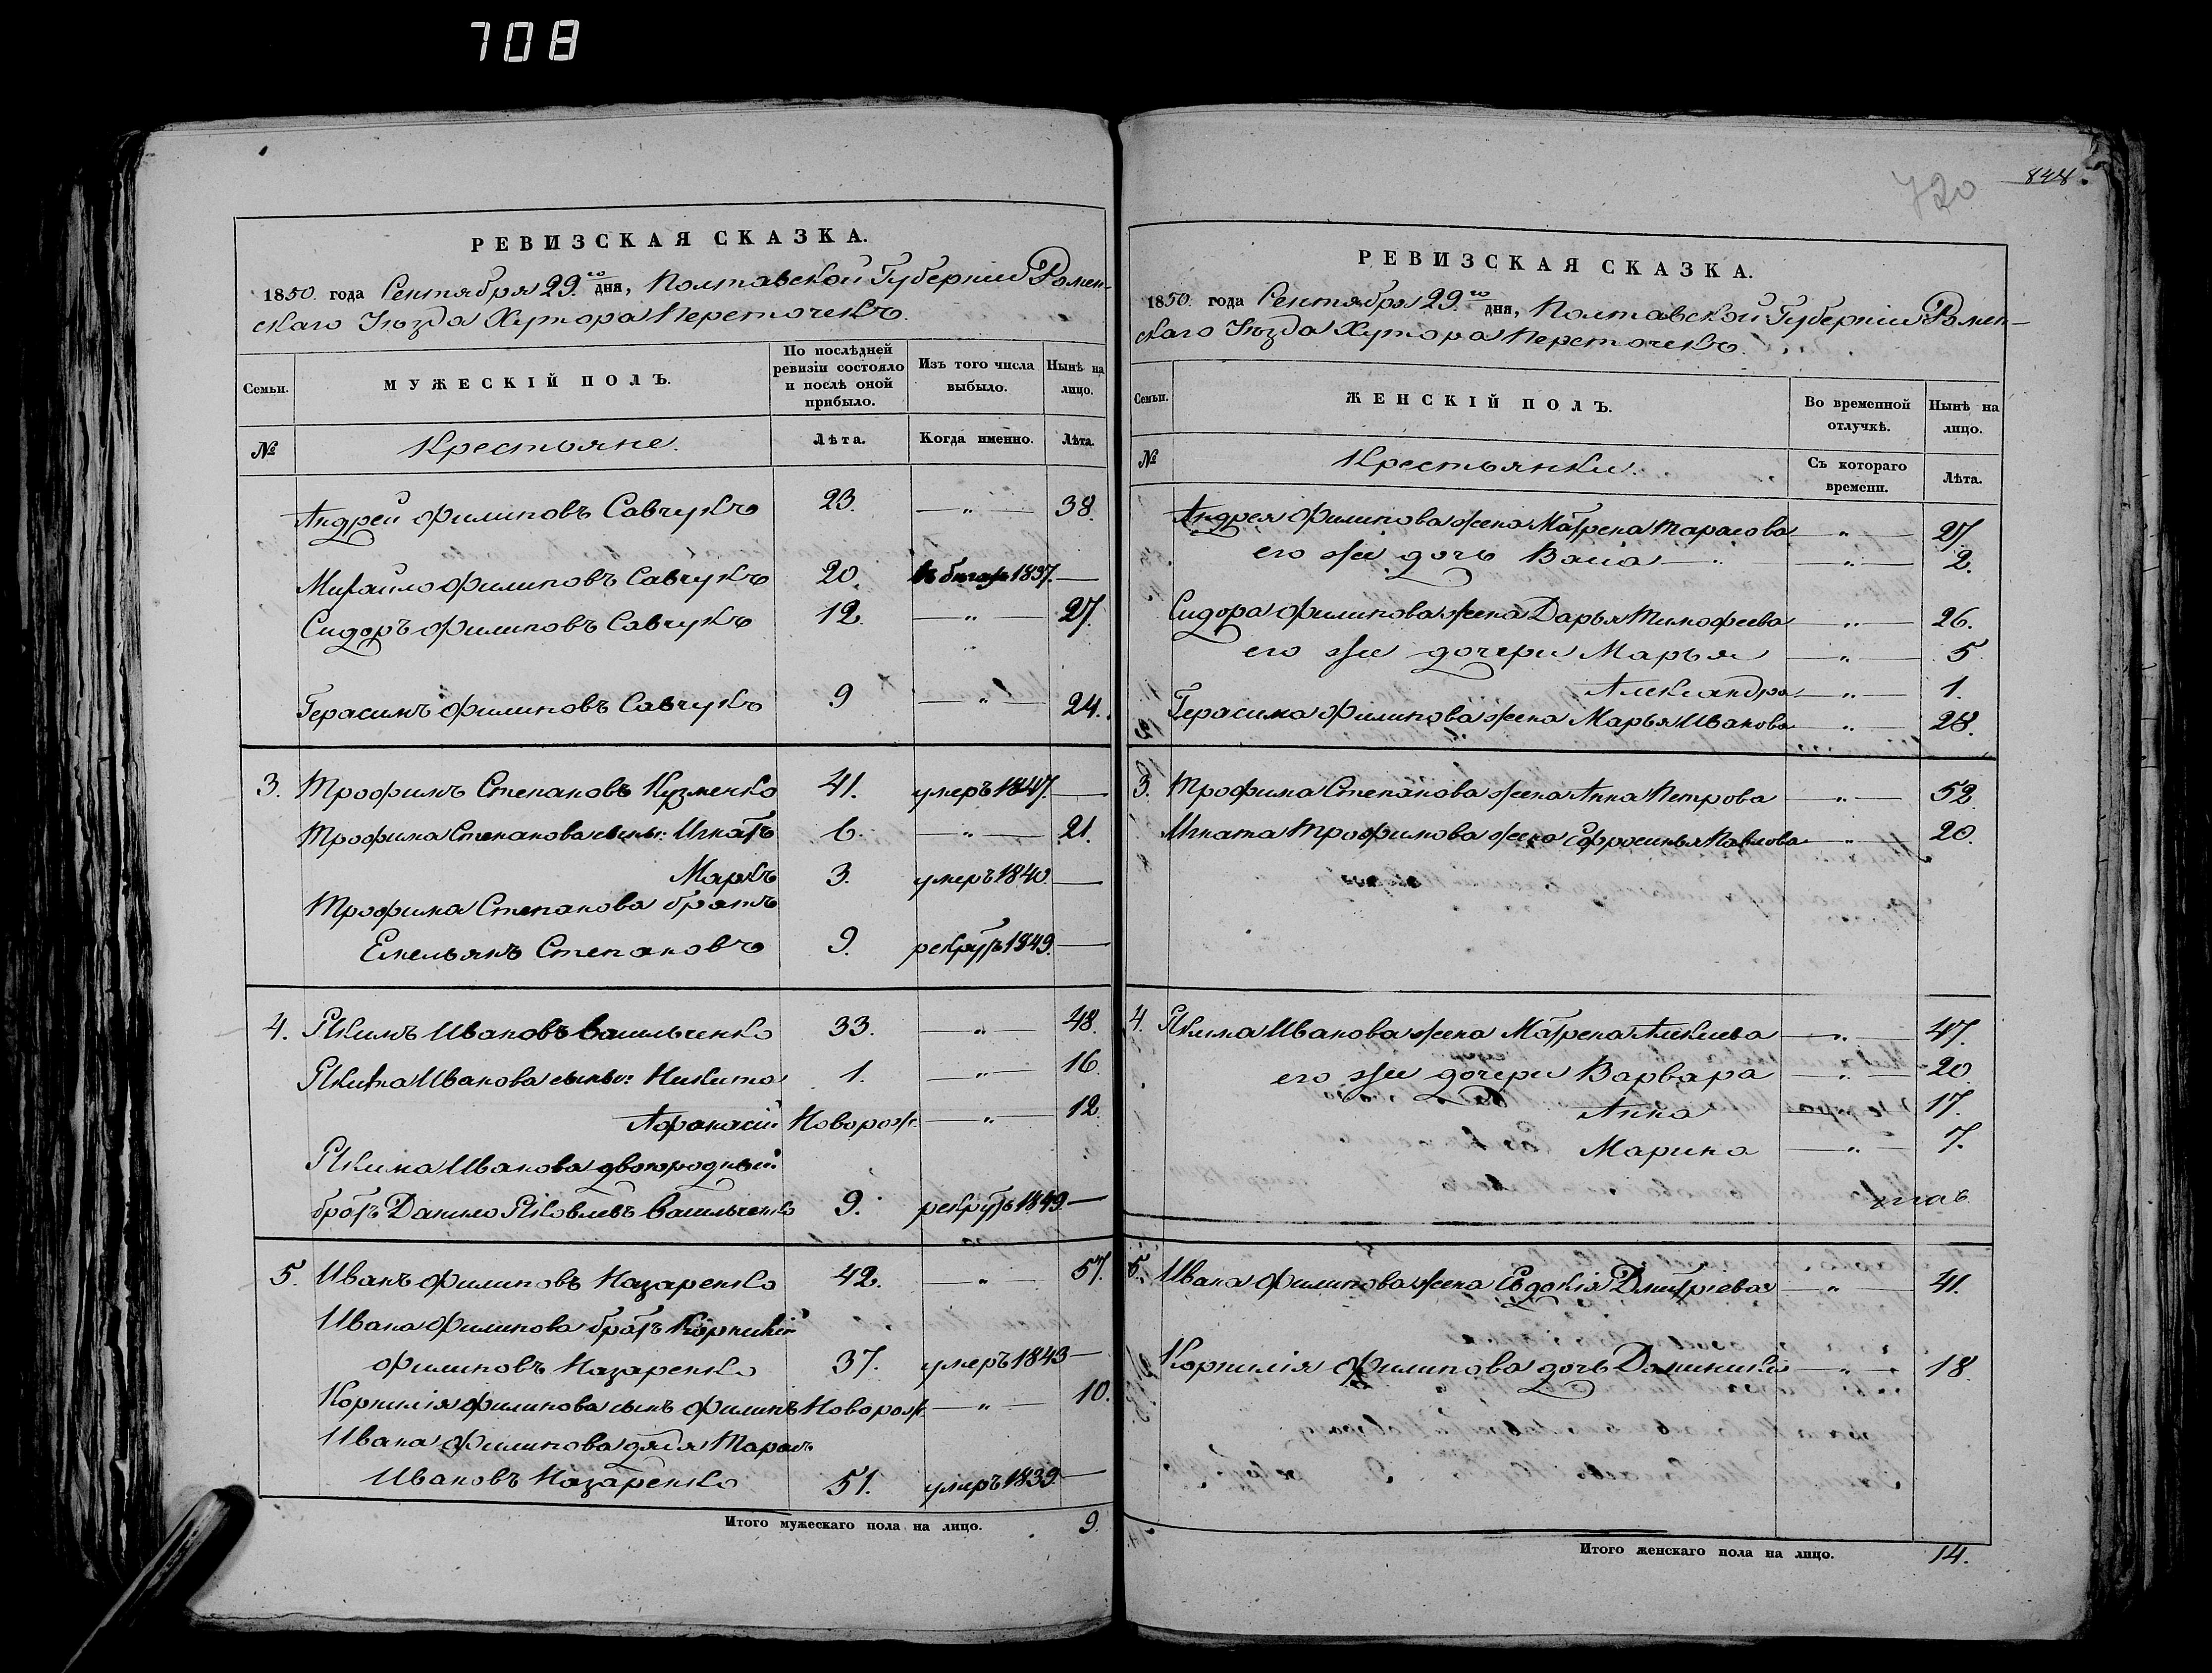 708
РЕВИЗСКАЯ СКАЗКА.
1850. года Сентября 29.го дня, Полтавской Губерніи Ромен-
скаго Уѣзда Хутора Переточекъ.
Семьи.
МУЖЕСКІЙ ПОЛЪ.
По послѣдней ревизіи состояло и послѣ оной прибыло.
Изъ того числа выбыло.
Нынѣ на лицо.
№
Крестьяне.
Лѣта.
Когда именно.
Лѣта.
Андрей Филиповъ Савчукъ 23. — „ — 38.
Михайло Филиповъ Савчукъ 20. 1837. —
Сидоръ Филиповъ Савчукъ 12. — „ — 27.
Герасимъ Филиповъ Савчукъ 9 — „ — 24.
3. Трофимъ Степановъ Кузменко 41. умеръ 1847. —
Трофима Степанова сыны: Игнатъ 6. — „ — 21.
Маркъ 3. умеръ 1840. —
Трофима Степанова братъ
Емельянъ Степановъ 9. рекрутъ 1849. —
4. Якимъ Ивановъ Васильченко 33. — „ — 48.
Якима Иванова сыны: Никита 1. — „ — 16.
Афанасій Новорож. — „ — 12.
Якима Иванова двоюродный
братъ Данило Яковлевъ Васильченко 9. рекрутъ 1849. —
5. Иванъ Филиповъ Назаренко 42. — „ — 57.
Ивана Филипова братъ Корнилій
Филиповъ Назаренко 37. умеръ 1843 —
Корнилія Филипова сынъ Филипъ Новорож. — „ — 10.
Ивана Филипова дядя Тарасъ
Ивановъ Назаренко 51. умеръ 1839. —
Итого мужескаго пола на лицо. 9.
720
848.
РЕВИЗСКАЯ СКАЗКА.
1850. года Сентября 29.го дня, Полтавской Губерніи Ромен-
скаго Уѣзда Хутора Переточекъ.
Семьи.
ЖЕНСКІЙ ПОЛЪ.
Во временной отлучкѣ.
Нынѣ на лицо.
№
Крестьянки.
Съ котораго времени.
Лѣта.
Андрея Филипова жена Матрена Тарасова — „ — 27.
его же дочь Васса — „ — 2.
Сидора Филипова жена Дарья Тимофеева — „ — 26.
его же дочери Марья — „ — 5
Александра — „ — 1.
Герасима Филипова жена Марья Иванова — „ — 28.
3. Трофима Степанова жена Анна Петрова — „ — 52.
Игната Трофимова жена Ефросинья Павлова — „ — 20.
4. Якима Иванова жена Матрена Алексеева — „ — 47.
его же дочери Варвара — „ — 20.
Анна — „ — 17.
Марина — „ — 7.
5. Ивана Филипова жена Евдокія Дмитріева — „ — 41.
Корнилія Филипова дочь Доминика — „ — 18.
Итого женскаго пола на лицо. 14.